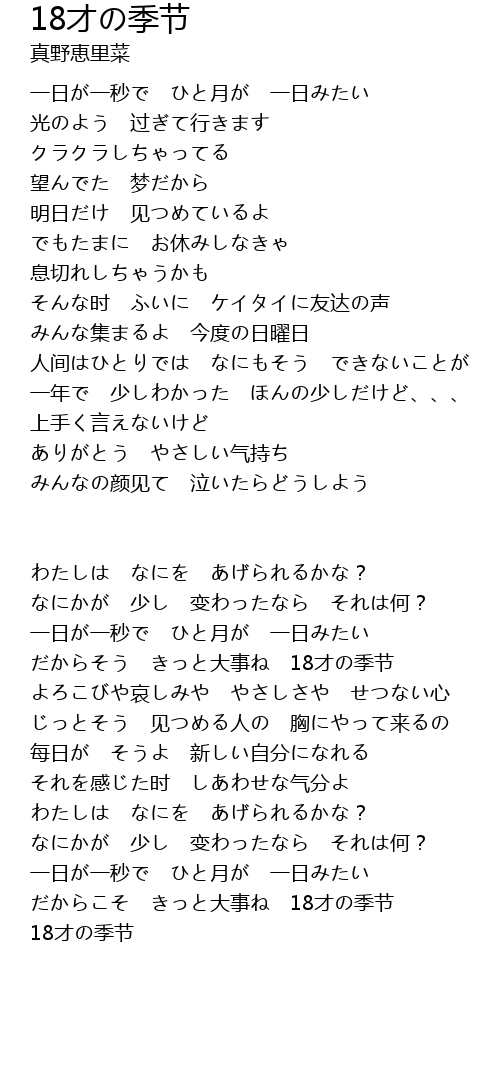 18才の季节
真野恵里菜
一日が一秒で　ひと月が　一日みたい
光のよう　过ぎて行きます
クラクラしちゃってる
望んでた　梦だから
明日だけ　见つめているよ
でもたまに　お休みしなきゃ
息切れしちゃうかも
そんな时　ふいに　ケイタイに友达の声
みんな集まるよ　今度の日曜日
人间はひとりでは　なにもそう　できないことが
一年で　少しわかった　ほんの少しだけど、、、
上手く言えないけど
ありがとう　やさしい气持ち
みんなの颜见て　泣いたらどうしよう
わたしは　なにを　あげられるかな？
なにかが　少し　变わったなら　それは何？
一日が一秒で　ひと月が　一日みたい
だからそう　きっと大事ね　18才の季节
よろこびや哀しみや　やさしさや　せつない心
じっとそう　见つめる人の　胸にやって来るの
每日が　そうよ　新しい自分になれる
それを感じた时　しあわせな气分よ
わたしは　なにを　あげられるかな？
なにかが　少し　变わったなら　それは何？
一日が一秒で　ひと月が　一日みたい
だからこそ　きっと大事ね　18才の季节
18才の季节